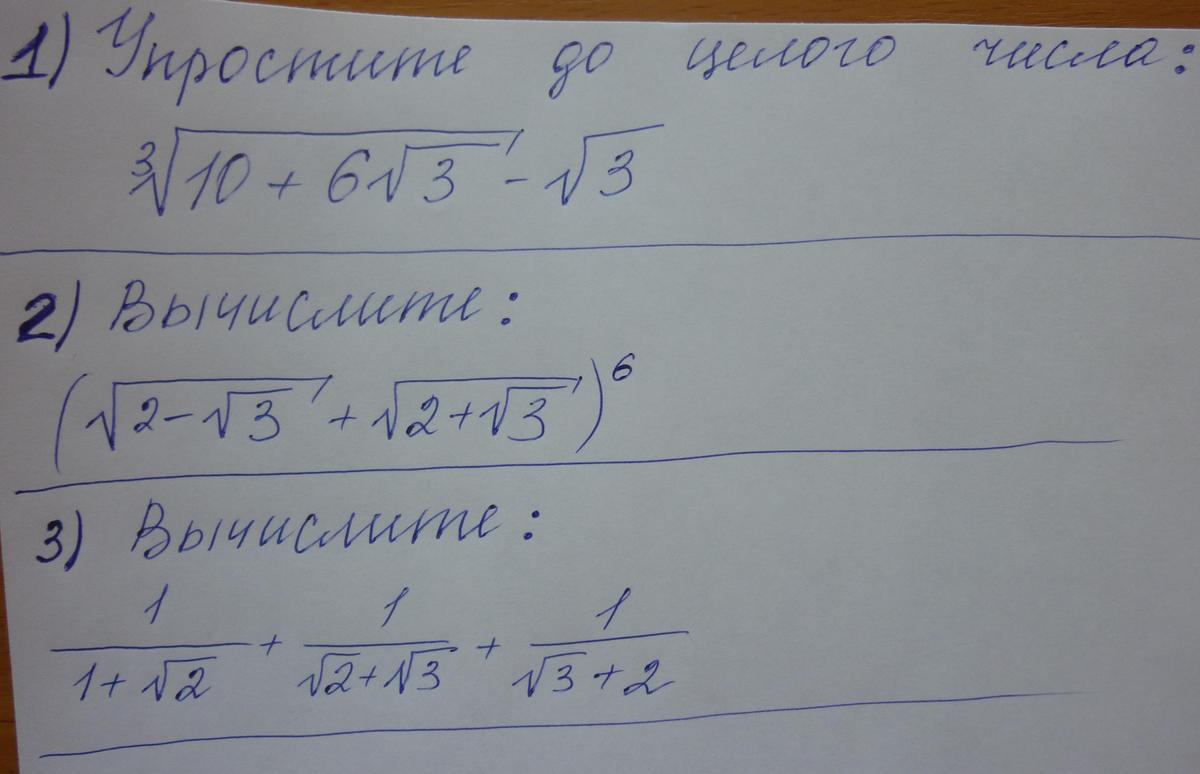 1) Упростите до целого числа:
∛(10 + 6√3) - √3
2) Вычислите:
(√(2-√3) + √(2+√3))⁶
3) Вычислите:
1/(1+√2) + 1/(√2+√3) + 1/(√3+2)